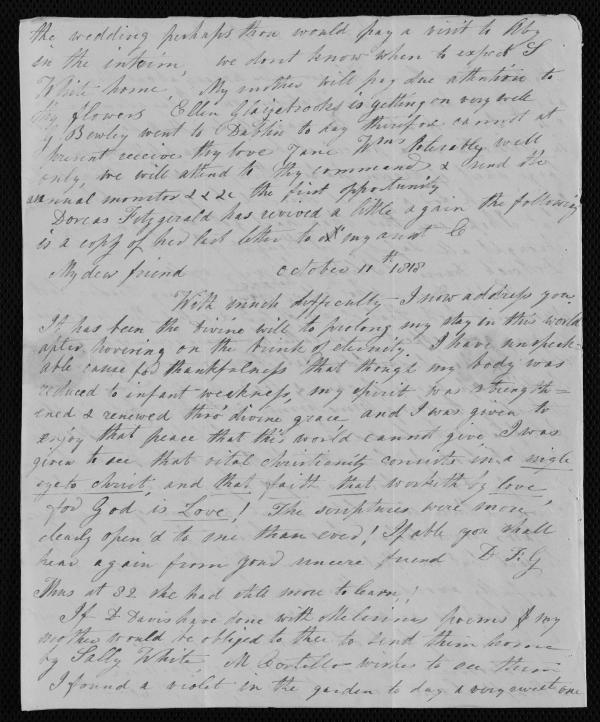 the wedding perhaps thou would pay a visit to Aby
in the interim, we dont know when to expect S
White home, My mother will pay due attention to
thy flowers Ellen Glaizebrooks is getting on very well
J Bewley went to Dublin to day therefore cannot at
present receive thy love Jane Wms tolerably well
only, we will attend to thy commands & send the
annual monitor &&c the first opportunity
Dorcas Fitzgerald has revived a little again the following
is a copy of her last letter to my aunt C
My dear friend October 11th 1818
With much difficulty I now address you
It has been the Divine will to prolong my stay in this world
after hovering on the brink of eternity. I have unspeak-
able cause for thankfulness that though my body was
reduced to infant weakness, my spirit was strength=
ened & renewed thro divine grace and I was given to
enjoy that peace that this world cannot give, I was
given to see that vital christianity consists in a single
eye to christ, and that faith that worketh by love,
for God is Love! The scriptures were more
clearly open'd to me than ever! If able you shall
hear again from your sincere friend D F G
Thus at 82 she had still more to learn!
If D Davis have done with Melesinas poems my
mother would be obliged to thee to send them home
by Sally White, M Costello wishes to see them
I found a violet in the garden to day a very sweet one